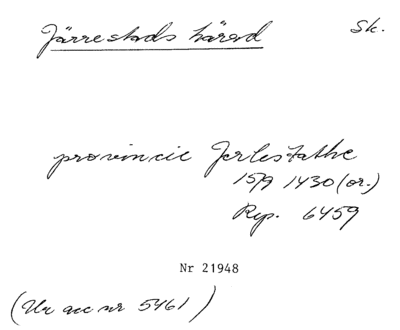 Järrestads härad Sk.
provincie Jerlestathe
15/9 1430 (or.)
Rep. 6459
Nr 21948
(Ur acc nr 5461)